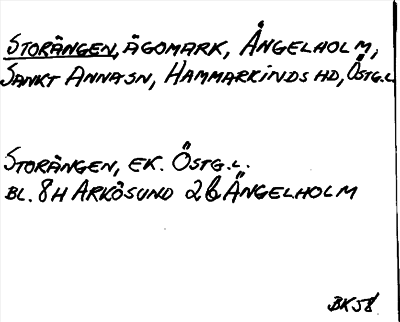 STORÄNGEN, ÄGOMARK, ÄNGELHOLM,
SANKT ANNA SN, HAMMARKINDS HD, ÖSTG.L.
STORÄNGEN, EK. ÖSTG.L.
BL. 8H ARKÖSUND 2b ÄNGELHOLM
BK58